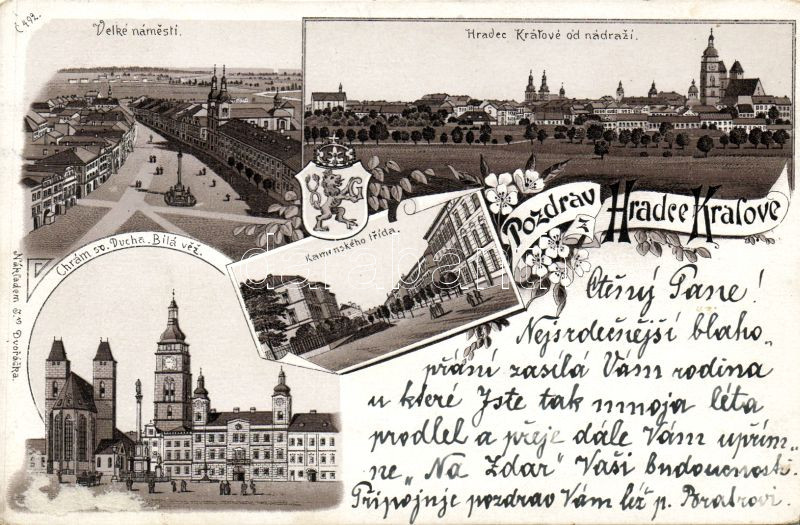 Č 492.
Velké náměstí.
Hradec Králové od nádraží.
G
Pozdrav
z
Hradce Králové
Chrám sv. Ducha. Bílá věž.
Komenského třída.
Nákladem
Dvořáčka.
Ctěný Pane!
Nejsrdečnější blaho„
přání zasílá Vám rodina
u které Jste tak mnoja léta
prodlel a přeje dále Vám upřím„
ne „Na Zdar“ Vaší budoucnosti.
Připojuje pozdrav Vám též p.